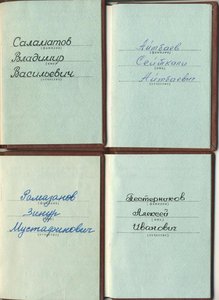 Саламатов
(фамилия)
Владимир
(имя)
Васильевич
(отчество)
Айтбаев
(фамилия)
Сейткали
(имя)
Айтбаевич
(отчество)
Рамазанов
(фамилия)
Зинур
(имя)
Мустафинович
(отчество)
Пестерников
(фамилия)
Алексей
(имя)
Иванович
(отчество)